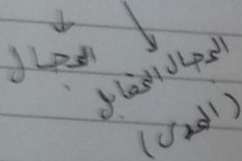 المجال المجال المقابل
(المدى)